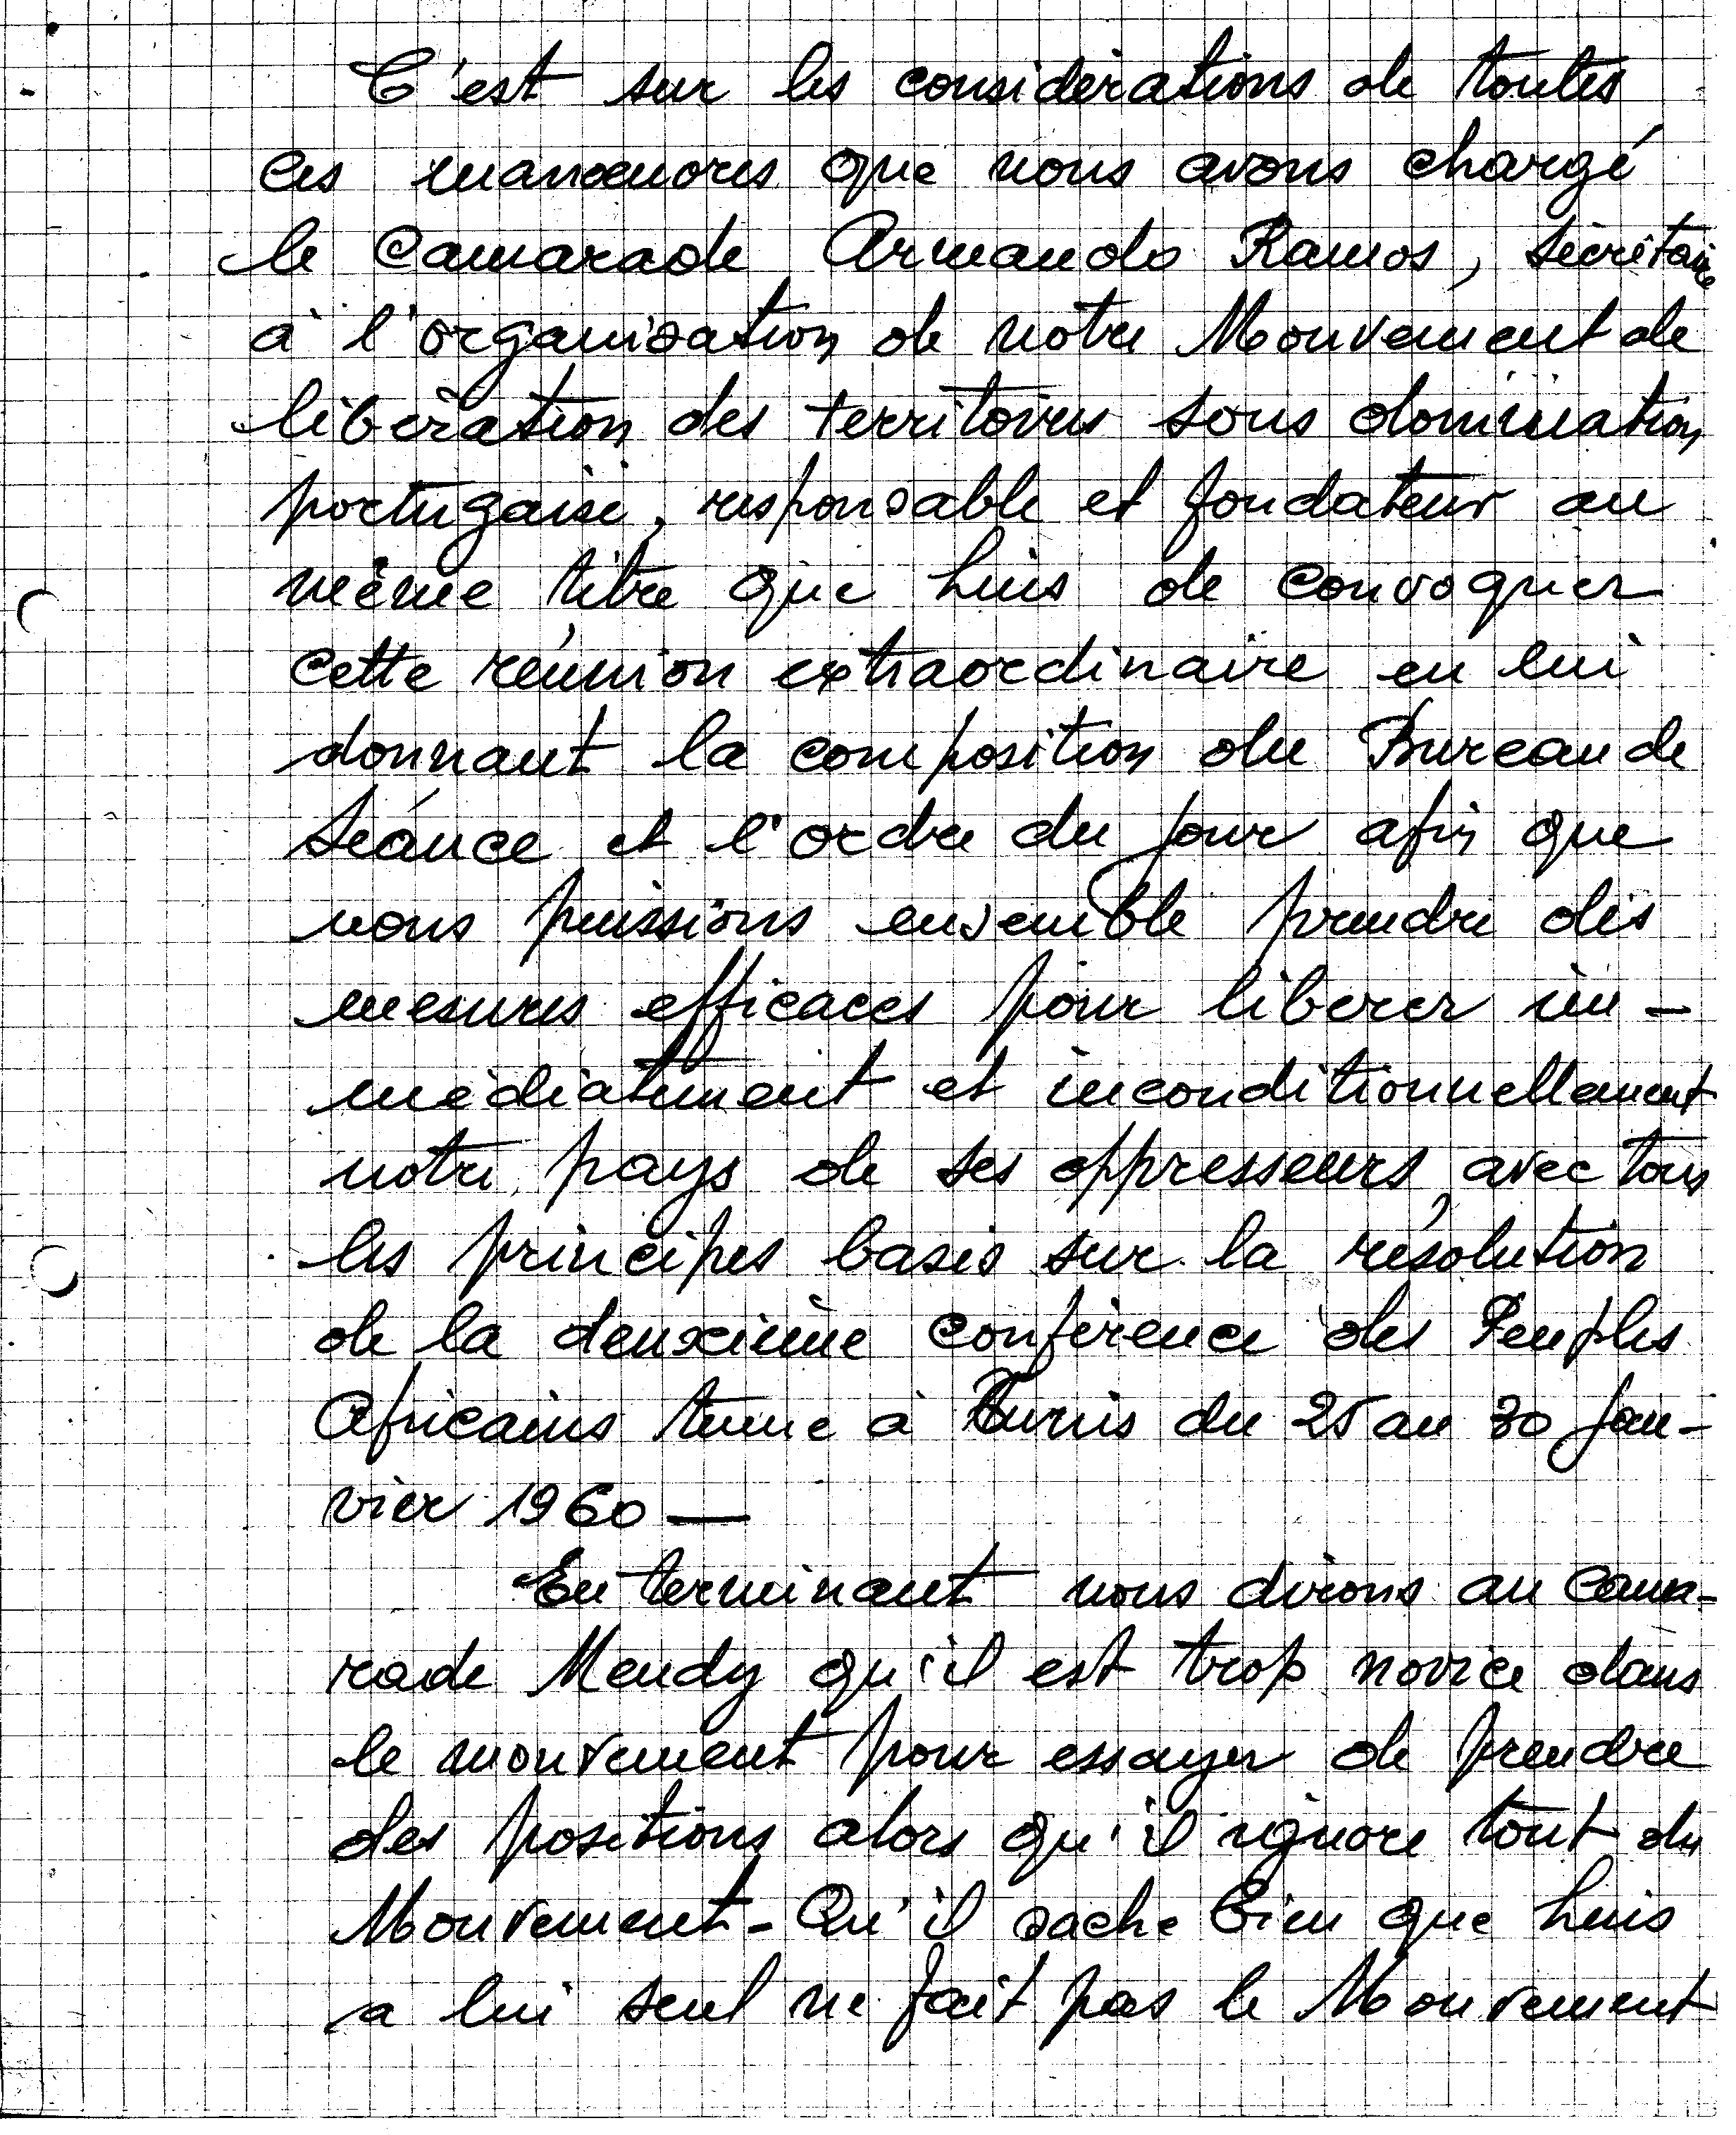 C'est sur les considérations de toutes
ces manœuvres que nous avons chargé
le Camarade Armando Ramos, Sécrétaire
à l'organisation de notre Mouvement de
libération des territoires sous domination
portugaise, responsable et fondateur au
même titre que Luis de convoquer
cette réunion extraordinaire en lui
donnant la composition du Bureau de
Séance et l'ordre du jour afin que
nous puissions ensemble prendre des
mesures efficaces pour liberer im-
médiatement et inconditionnellement
notre pays de ses oppresseurs, avec tous
les principes basés sur la résolution
de la deuxième conférence des Peuples
Africains tenue à Tunis du 25 au 30 Jan-
vier 1960 —
En terminant nous dirons au Cama-
rade Mendy qu'il est trop novice dans
le mouvement pour essayer de prendre
des positions alors qu'il ignore tout du
Mouvement - Qu'il sache bien que Luis
a lui seul ne fait pas le Mouvement